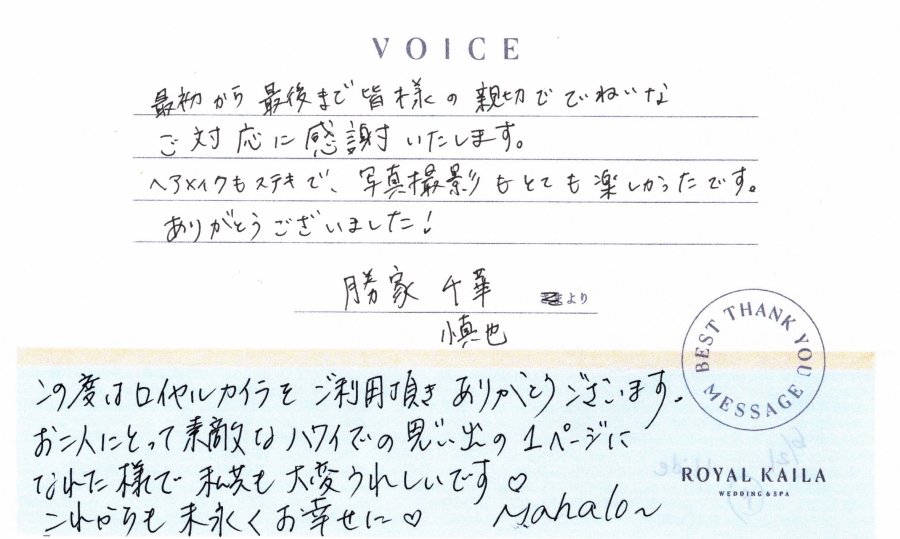 VOICE
最初から最後まで皆様の親切でていねいな
ご対応に感謝いたします。
ヘアメイクもステキで、写真撮影もとても楽しかったです。
ありがとうございました!
勝家 千華
より
慎也
BEST THANK YOU MESSAGE
この度はロイヤルカイラをご利用頂きありがとうございます。
お二人にとって素敵なハワイでの思い出の1ページに
なれた様で私共も大変うれしいです♡
これからも末永くお幸せに♡ Mahalo~
ROYAL KAILA
WEDDING & SPA